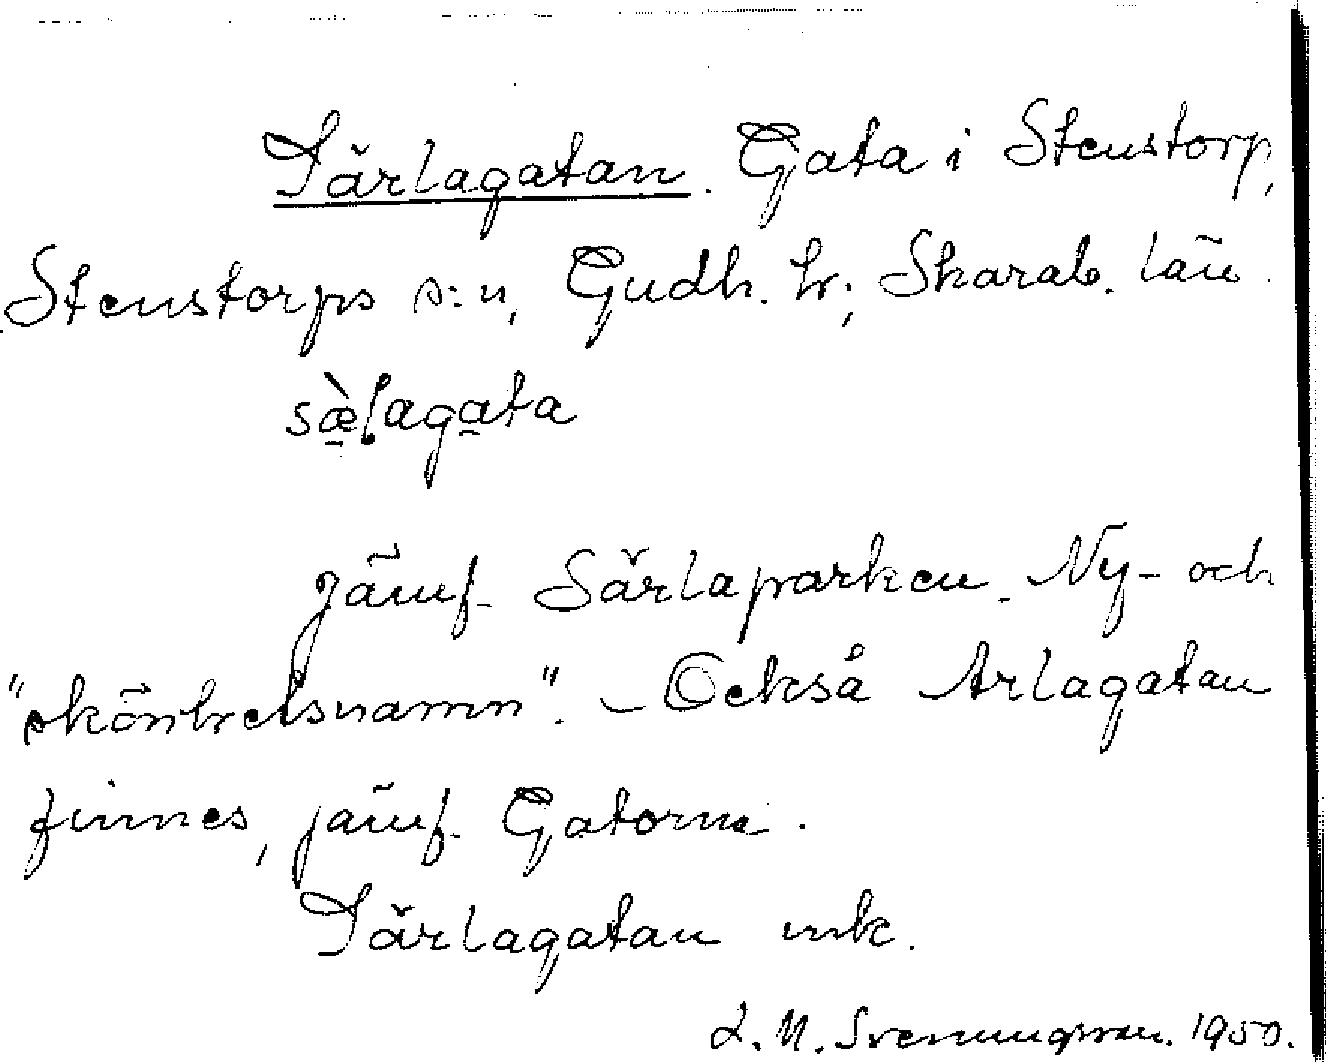 Särlagatan. Gata i Stenstorp,
Stenstorps s:n, Gudh. hr; Skarab. län.
sæ̀lagata
Jämf. Särlaparken. Ny- och
"skönhetsnamn". – Också Arlagatan
finnes, jämf. Gatorna.
Särlagatan mk.
L. M. Svenungsson. 1950.